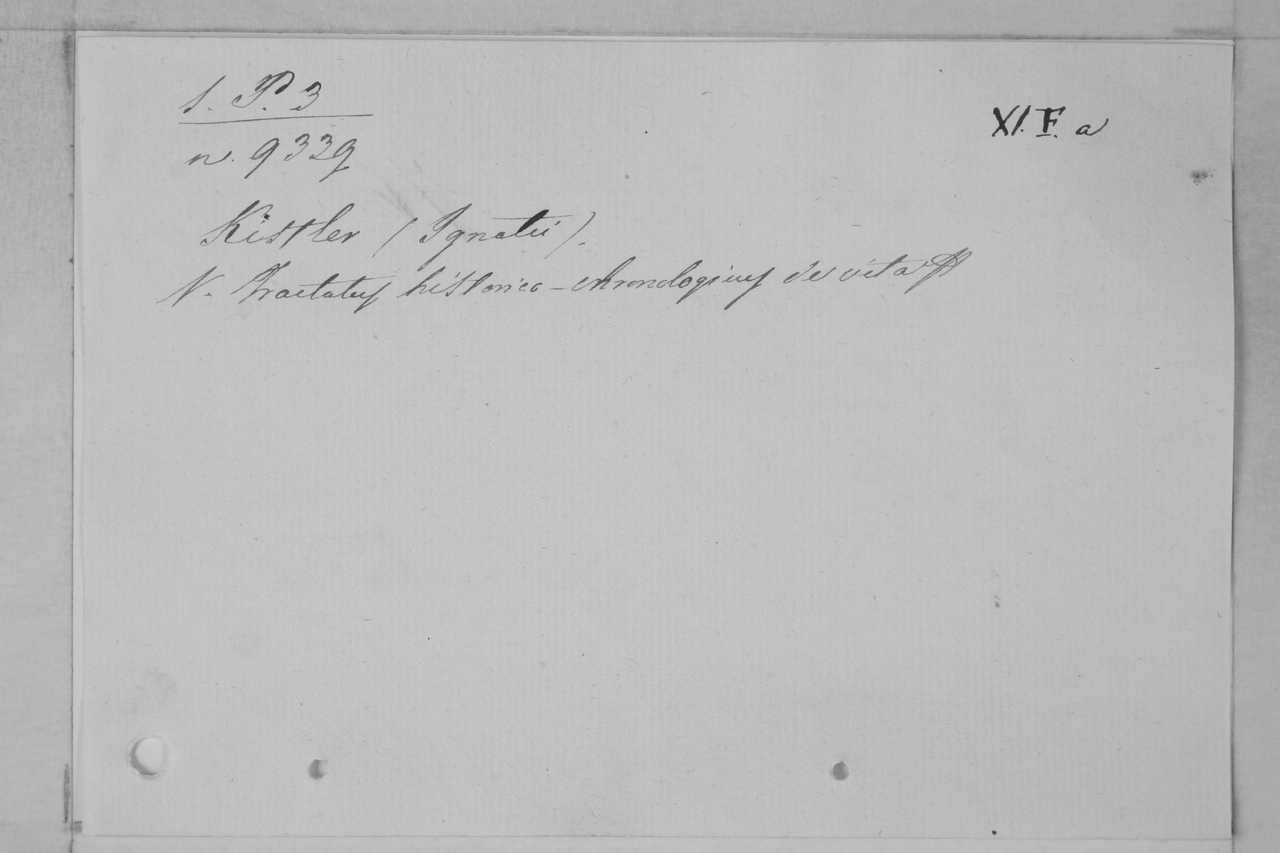 S. P. 3
XI. F. a
n. 9339
Kistler (Ignatii).
N. Tractatus historico-chronologicus de vita